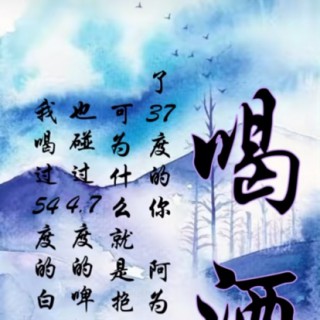 喝酒
我喝过54度的白
也碰过4.7度的啤
可为什么就是抱
了37度的你 阿为